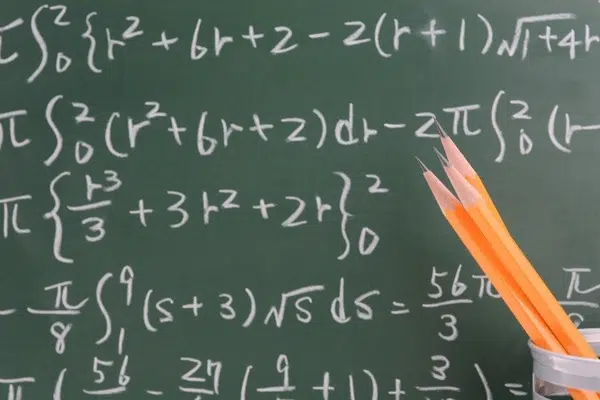 π∫₀² {r² + 6r + 2 − 2(r + 1)√1+4r
π∫₀² (r² + 6r + 2)dr − 2π∫₀² (r −
π{r³/3 + 3r² + 2r}₀²
− π/8 ∫₁⁹ (s + 3)√s ds = 56/3 π π
π ( 56 − 27 ( 9 + 1) + 3 ) =